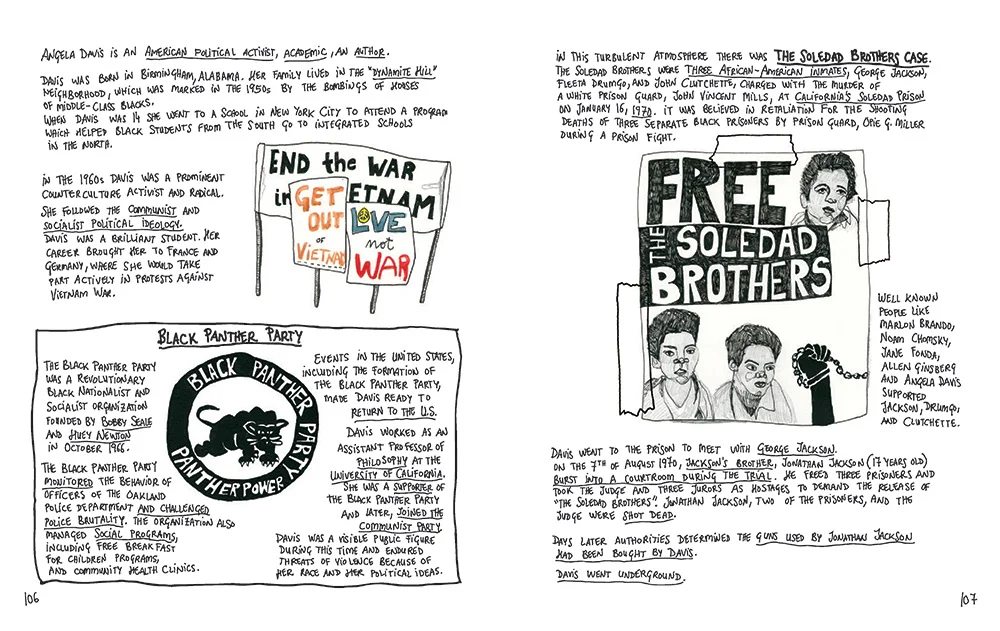 ANGELA DAVIS IS AN AMERICAN POLITICAL ACTIVIST, ACADEMIC, AN AUTHOR.
DAVIS WAS BORN IN BIRMINGHAM, ALABAMA. HER FAMILY LIVED IN THE "DYNAMITE HILL"
NEIGHBORHOOD, WHICH WAS MARKED IN THE 1950s BY THE BOMBINGS OF HOUSES
OF MIDDLE-CLASS BLACKS.
WHEN DAVIS WAS 14 SHE WENT TO A SCHOOL IN NEW YORK CITY TO ATTEND A PROGRAM
WHICH HELPED BLACK STUDENTS FROM THE SOUTH GO TO INTEGRATED SCHOOLS
IN THE NORTH.
IN THE 1960s DAVIS WAS A PROMINENT
COUNTERCULTURE ACTIVIST AND RADICAL.
SHE FOLLOWED THE COMMUNIST AND
SOCIALIST POLITICAL IDEOLOGY.
DAVIS WAS A BRILLIANT STUDENT. HER
CAREER BROUGHT HER TO FRANCE AND
GERMANY, WHERE SHE WOULD TAKE
PART ACTIVELY IN PROTESTS AGAINST
VIETNAM WAR.
END the WAR
in IETNAM
GET
OUT
OF
VIETNAM
LOVE
not
WAR
BLACK PANTHER PARTY
THE BLACK PANTHER PARTY
WAS A REVOLUTIONARY
BLACK NATIONALIST AND
SOCIALIST ORGANIZATION
FOUNDED BY BOBBY SEALE
AND HUEY NEWTON
IN OCTOBER 1966.
THE BLACK PANTHER PARTY
MONITORED THE BEHAVIOR OF
OFFICERS OF THE OAKLAND
POLICE DEPARTMENT AND CHALLENGED
POLICE BRUTALITY. THE ORGANIZATION ALSO
MANAGED SOCIAL PROGRAMS,
INCLUDING FREE BREAKFAST
FOR CHILDREN PROGRAMS,
AND COMMUNITY HEALTH CLINICS.
BLACK PANTHER PARTY
PANTHER POWER
EVENTS IN THE UNITED STATES,
INCLUDING THE FORMATION OF
THE BLACK PANTHER PARTY,
MADE DAVIS READY TO
RETURN TO THE U.S.
DAVIS WORKED AS AN
ASSISTANT PROFESSOR OF
PHILOSOPHY AT THE
UNIVERSITY OF CALIFORNIA.
SHE WAS A SUPPORTER OF
THE BLACK PANTHER PARTY
AND LATER, JOINED THE
COMMUNIST PARTY.
DAVIS WAS A VISIBLE PUBLIC FIGURE
DURING THIS TIME AND ENDURED
THREATS OF VIOLENCE BECAUSE OF
HER RACE AND HER POLITICAL IDEAS.
106
IN THIS TURBULENT ATMOSPHERE THERE WAS THE SOLEDAD BROTHERS CASE.
THE SOLEDAD BROTHERS WERE THREE AFRICAN-AMERICAN INMATES, GEORGE JACKSON,
FLEETA DRUMGO, AND JOHN CLUTCHETTE, CHARGED WITH THE MURDER OF
A WHITE PRISON GUARD, JOHN VINCENT MILLS, AT CALIFORNIA'S SOLEDAD PRISON
ON JANUARY 16, 1970. IT WAS BELIEVED IN RETALIATION FOR THE SHOOTING
DEATHS OF THREE SEPARATE BLACK PRISONERS BY PRISON GUARD, OPIE G. MILLER
DURING A PRISON FIGHT.
FREE
THE SOLEDAD
BROTHERS
WELL KNOWN
PEOPLE LIKE
MARLON BRANDO,
NOAM CHOMSKY,
JANE FONDA,
ALLEN GINSBERG
AND ANGELA DAVIS
SUPPORTED
JACKSON, DRUMGO,
AND CLUTCHETTE.
DAVIS WENT TO THE PRISON TO MEET WITH GEORGE JACKSON.
ON THE 7TH OF AUGUST 1970, JACKSON'S BROTHER, JONATHAN JACKSON (17 YEARS OLD)
BURST INTO A COURTROOM DURING THE TRIAL. HE FREED THREE PRISONERS AND
TOOK THE JUDGE AND THREE JURORS AS HOSTAGES TO DEMAND THE RELEASE OF
"THE SOLEDAD BROTHERS". JONATHAN JACKSON, TWO OF THE PRISONERS, AND THE
JUDGE WERE SHOT DEAD.
DAYS LATER AUTHORITIES DETERMINED THE GUNS USED BY JONATHAN JACKSON
HAD BEEN BOUGHT BY DAVIS.
DAVIS WENT UNDERGROUND.
107